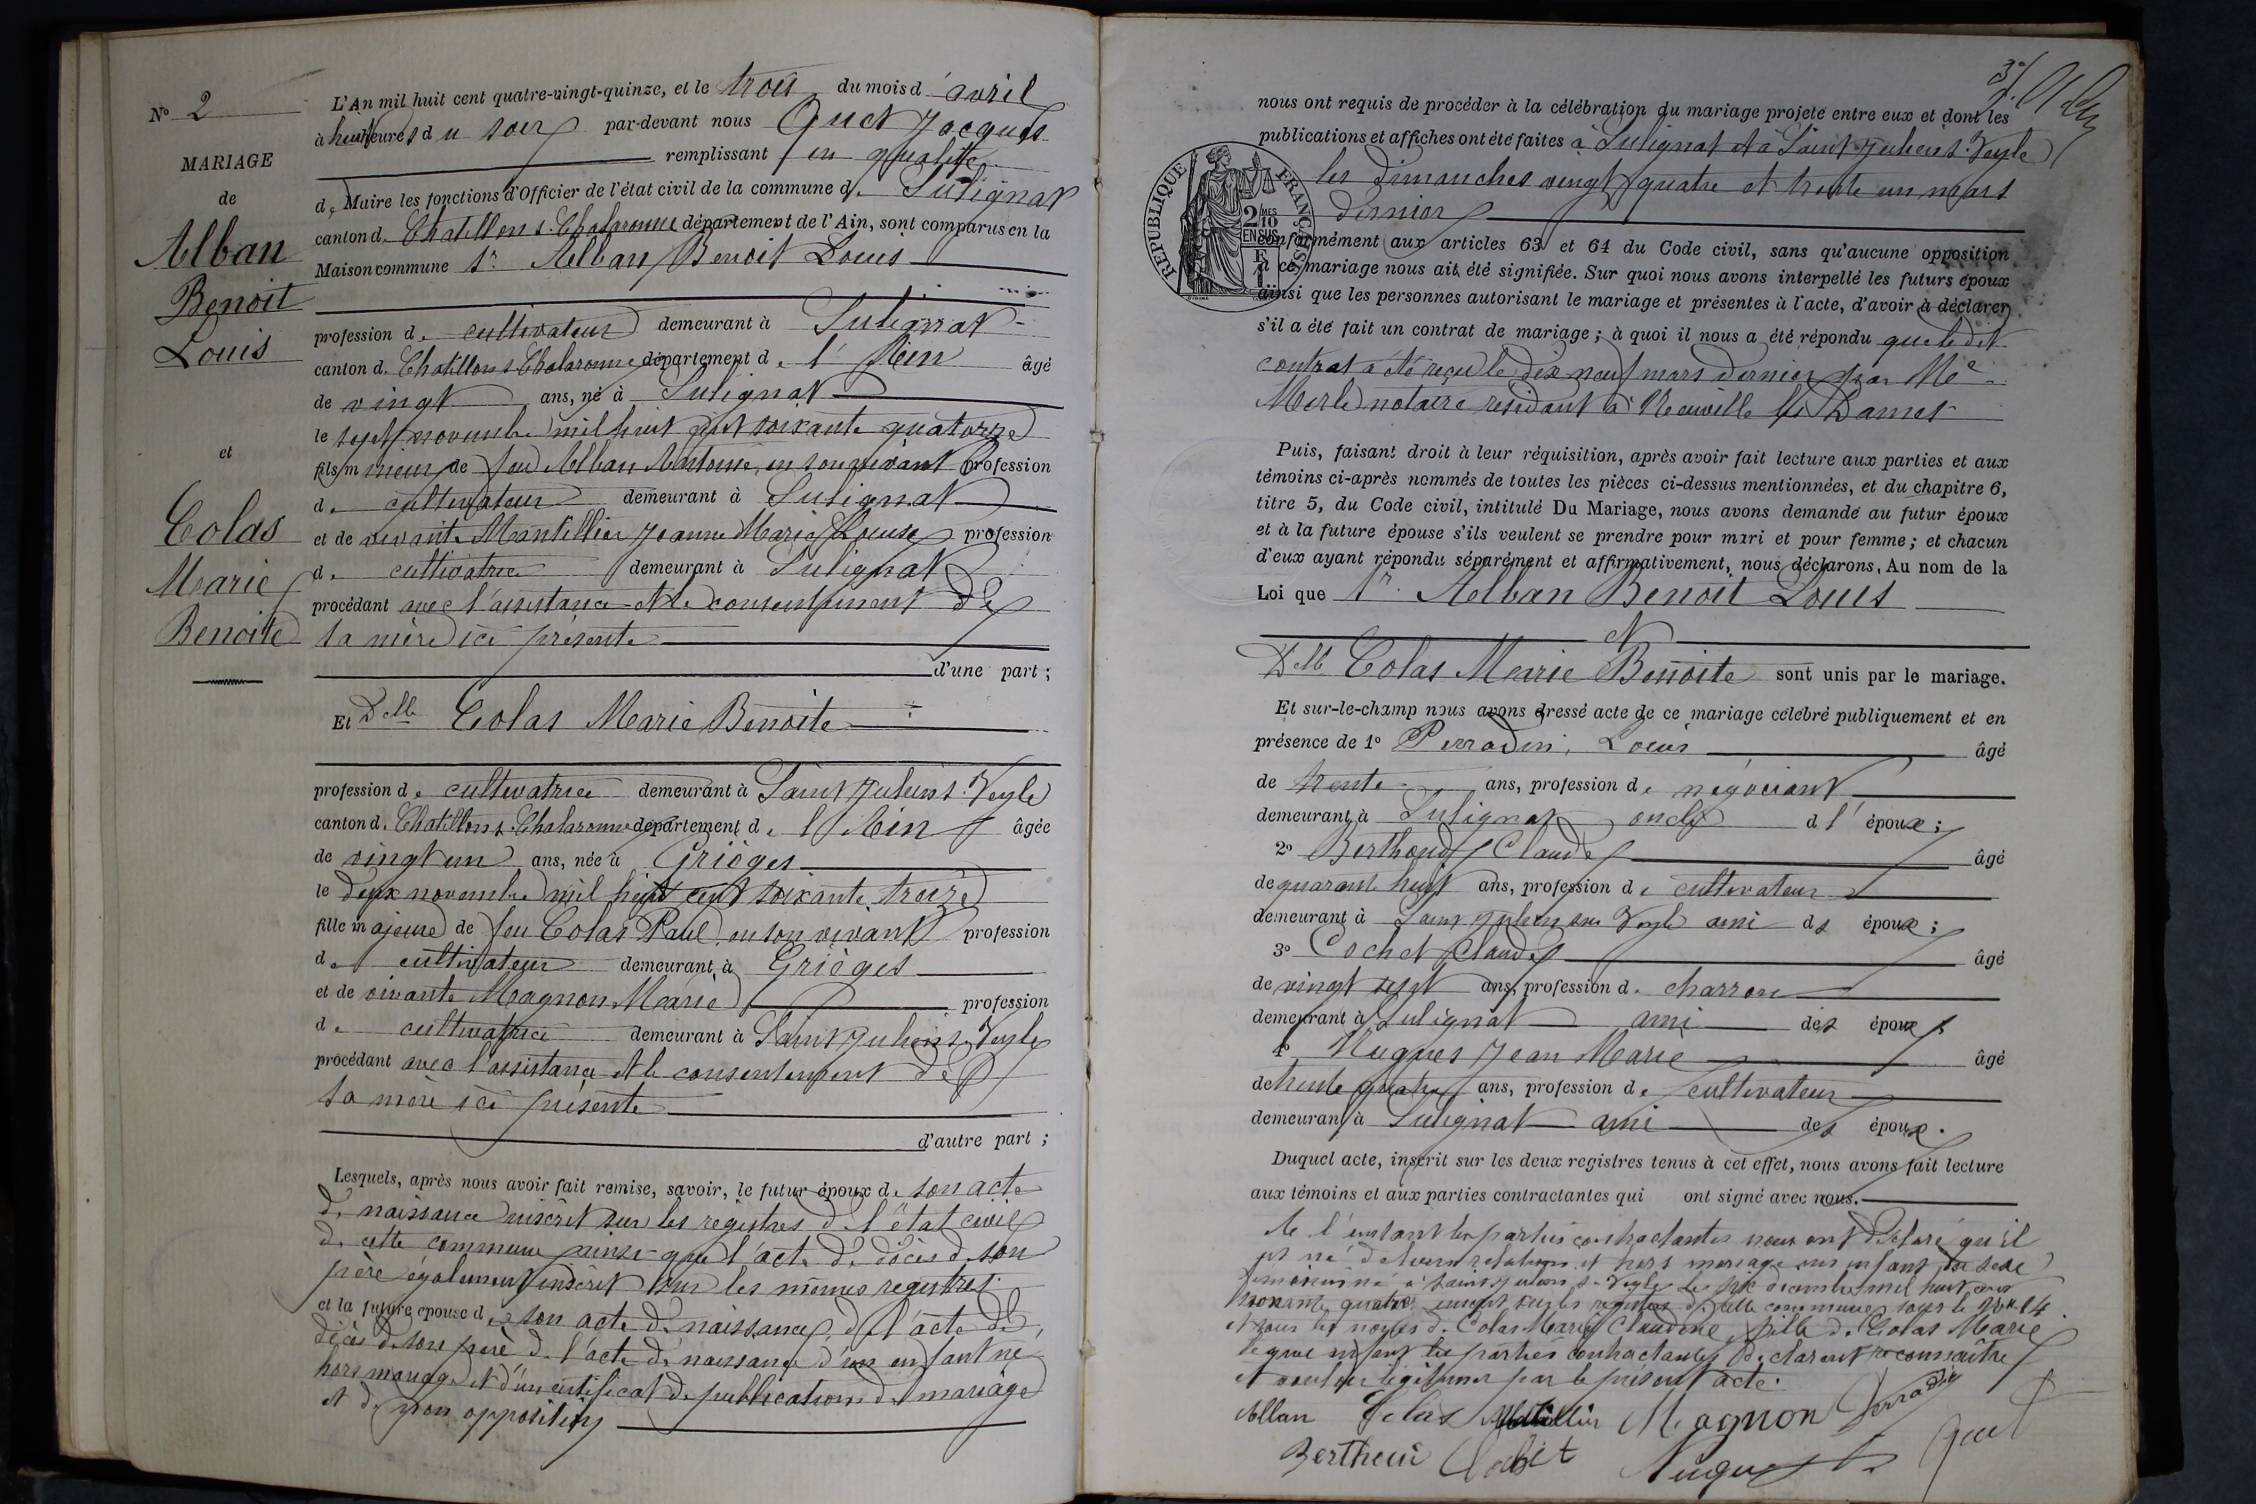 N° 2
MARIAGE
de
Alban
Benoit
Louis
et
Colas
Marie
Benoite
L'An mil huit cent quatre-vingt-quinze, et le trois du mois d'avril
à heures du soir par-devant nous Quet Jacques
remplissant en qualité
de Maire les fonctions d'Officier de l'état civil de la commune de Sulignat
canton de Chatillon s. Chalaronne département de l'Ain, sont comparus en la
Maison commune 1r. Alban Benoit Louis
profession de cultivateur demeurant à Sulignat
canton de Chatillon s Chalaronne département de l'Ain âgé
de vingt ans, né à Sulignat
le sept novembre mil huit cent soixante quatorze
fils mineur de feu Alban Antoine, en son vivant profession
de cultivateur demeurant à Sulignat
et de vivante Mantillier Jeanne Marie Louise profession
de cultivatrice demeurant à Sulignat
procédant avec l'assistance et le consentement de
sa mère ici présente
d'une part ;
Et Delle Colas Marie Benoite
profession de cultivatrice demeurant à Saint Julien s. Veyle
canton de Chatillon s. Chalaronne département de l'Ain âgée
de vingt un ans, née à Grièges
le deux novembre mil huit cent soixante treize
fille majeure de feu Colas Paul, en son vivant profession
de cultivateur demeurant à Grièges
et de vivante Magnon Marie profession
de cultivatrice demeurant à Saint Julien s. Veyle
procédant avec l'assistance et le consentement de
sa mère ici présente
d'autre part ;
Lesquels, après nous avoir fait remise, savoir, le futur époux de son acte
de naissance inscrit sur les registres de l'état civil
de cette commune ainsi que l'acte de décès de son
père également inscrit sur les mêmes registres.
et la future épouse de son acte de naissance, de l'acte de
décès de son père de l'acte de naissance d'un enfant né
hors mariage et d'un certificat de publication de mariage
et de non opposition
3
nous ont requis de procéder à la célébration du mariage projeté entre eux et dont les
publications et affiches ont été faites à Sulignat et à Saint Julien s. Veyle
les dimanches vingt quatre et trente un mars
dernier
RÉPUBLIQUE FRANÇAISE
2/10 EN SUS
conformément aux articles 63 et 64 du Code civil, sans qu'aucune opposition
à ce mariage nous ait été signifiée. Sur quoi nous avons interpellé les futurs époux
ainsi que les personnes autorisant le mariage et présentes à l'acte, d'avoir à déclarer
s'il a été fait un contrat de mariage ; à quoi il nous a été répondu que le dit
contrat a été reçu le dix neuf mars dernier par Me
Merle notaire résidant à Neuville les Dames
Puis, faisant droit à leur réquisition, après avoir fait lecture aux parties et aux
témoins ci-après nommés de toutes les pièces ci-dessus mentionnées, et du chapitre 6,
titre 5, du Code civil, intitulé Du Mariage, nous avons demandé au futur époux
et à la future épouse s'ils veulent se prendre pour mari et pour femme ; et chacun
d'eux ayant répondu séparément et affirmativement, nous déclarons, Au nom de la
Loi que 1r. Alban Benoit Louis
et
Delle Colas Marie Benoite sont unis par le mariage.
Et sur-le-champ nous avons dressé acte de ce mariage célébré publiquement et en
présence de 1° Perradin, Louis âgé
de trente ans, profession de négociant
demeurant à Sulignat oncle de l'époux ;
2° Berthoud Claude âgé
de quarante huit ans, profession de cultivateur
demeurant à Saint Julien sur Veyle ami des époux ;
3° Cochet Claude âgé
de vingt sept ans, profession de charron
demeurant à Sulignat ami des époux ;
4° Hugues Jean Marie âgé
de trente quatre ans, profession de cultivateur
demeurant à Sulignat ami des époux.
Duquel acte, inscrit sur les deux registres tenus à cet effet, nous avons fait lecture
aux témoins et aux parties contractantes qui ont signé avec nous.
A l'instant les parties contractantes nous ont déclaré qu'il
est né de leurs relations et hors mariage un enfant du sexe
féminin né à Saint Julien s. Veyle le six décembre mil huit cent
nonante quatre inscrit sur les registres de cette commune sous le No 14
et sous les noms de Colas Marie Claudine fille de Colas Marie
lequel enfant les parties contractantes déclarent reconnaître
et vouloir légitimer par le présent acte.
Alban Colas Mantillier Magnon Perradin
Berthoud Cochet Hugues Quet